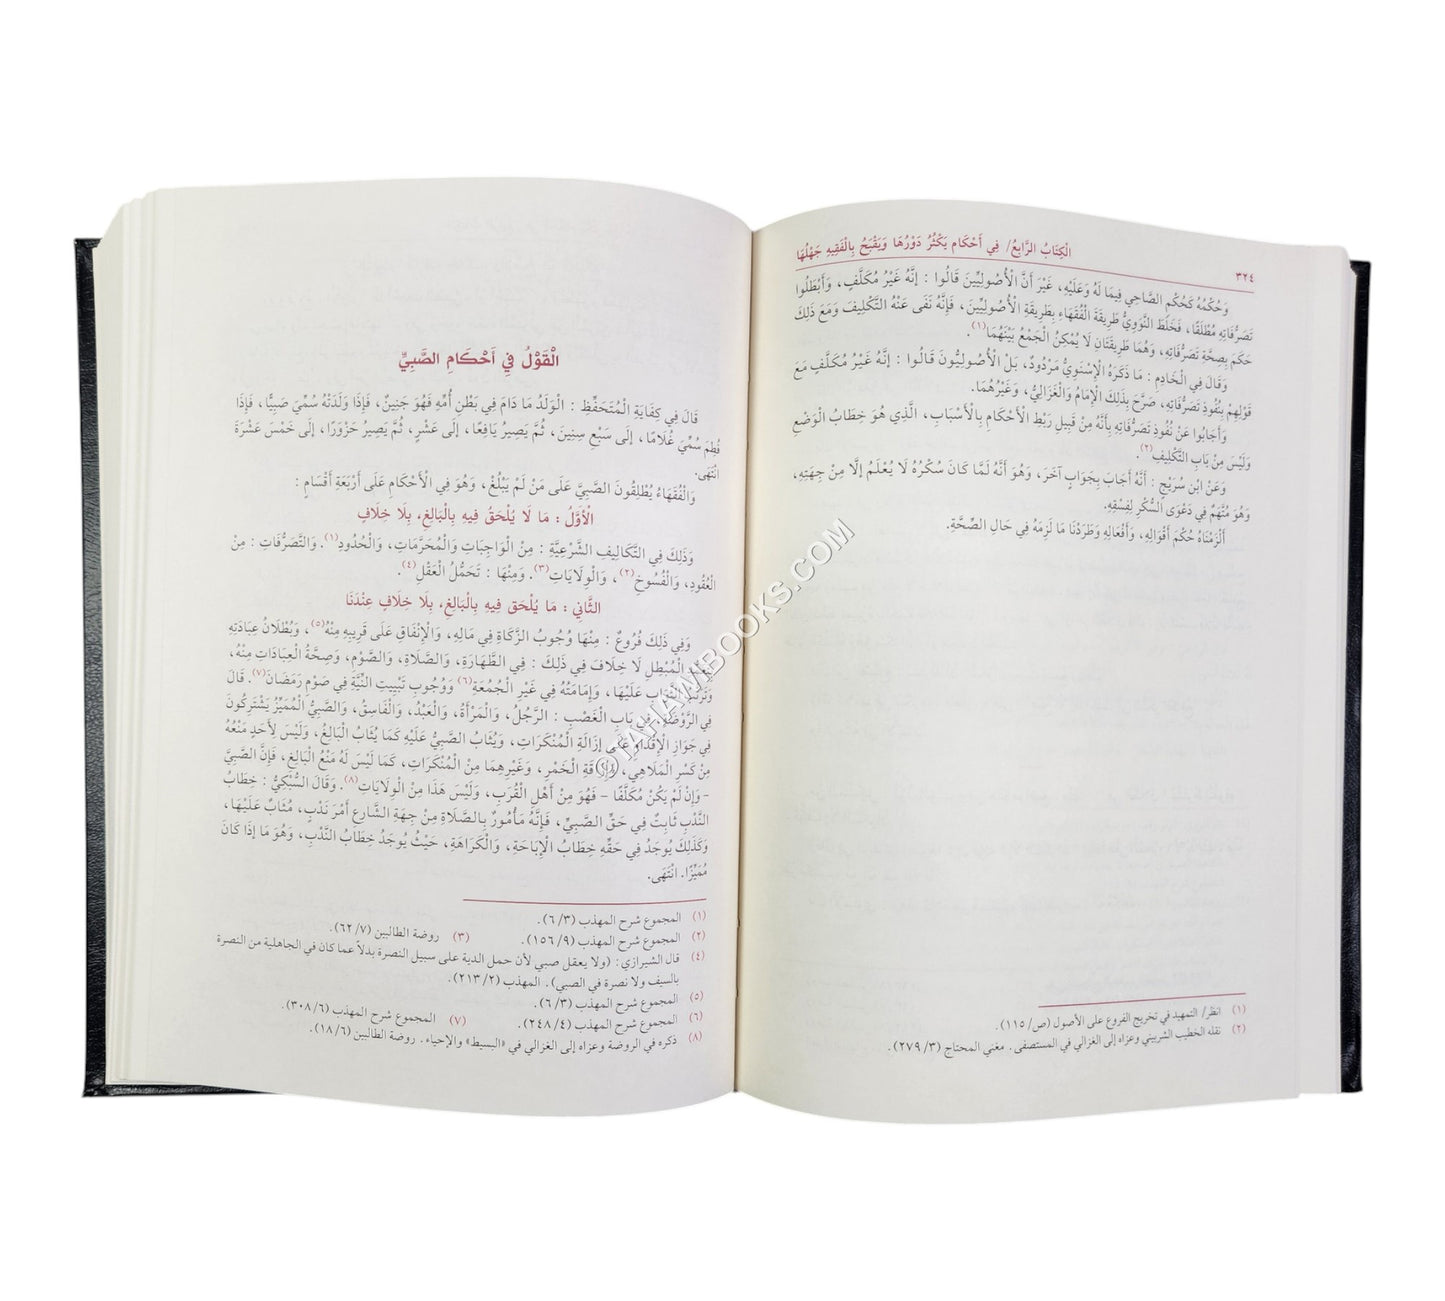 الْكِتَابُ الرَّابِعُ/ فِي أَحْكَامٍ يَكْثُرُ دَوْرُهَا وَيَقْبَحُ بِالْفَقِيهِ جَهْلُهَا
٣٢٤
وَحُكْمُهُ كَحُكْمِ الصَّاحِي فِيمَا لَهُ وَعَلَيْهِ، غَيْرَ أَنَّ الْأُصُولِيِّينَ قَالُوا : إِنَّهُ غَيْرُ مُكَلَّفٍ، وَأَبْطَلُوا
تَصَرُّفَاتِهِ مُطْلَقًا، فَخَلَطَ النَّوَوِيُّ طَرِيقَةَ الْفُقَهَاءِ بِطَرِيقَةِ الْأُصُولِيِّينَ، فَإِنَّهُ نَفَى عَنْهُ التَّكْلِيفَ وَمَعَ ذَلِكَ
حَكَمَ بِصِحَّةِ تَصَرُّفَاتِهِ، وَهُمَا طَرِيقَتَانِ لَا يُمْكِنُ الْجَمْعُ بَيْنَهُمَا(١).
وَقَالَ فِي الْخَادِمِ : مَا ذَكَرَهُ الْإِسْنَوِيُّ مَرْدُودٌ، بَلْ الْأُصُولِيُّونَ قَالُوا : إِنَّهُ غَيْرُ مُكَلَّفٍ مَعَ
قَوْلِهِمْ بِنُفُوذِ تَصَرُّفَاتِهِ، صَرَّحَ بِذَلِكَ الْإِمَامُ وَالْغَزَالِيُّ، وَغَيْرُهُمَا.
وَأَجَابُوا عَنْ نُفُوذِ تَصَرُّفَاتِهِ بِأَنَّهُ مِنْ قَبِيلِ رَبْطِ الْأَحْكَامِ بِالْأَسْبَابِ، الَّذِي هُوَ خِطَابُ الْوَضْعِ
وَلَيْسَ مِنْ بَابِ التَّكْلِيفِ(٢).
وَعَنْ ابْنِ سُرَيْجٍ : أَنَّهُ أَجَابَ بِجَوَابٍ آخَرَ، وَهُوَ أَنَّهُ لَمَّا كَانَ سُكْرُهُ لَا يُعْلَمُ إلَّا مِنْ جِهَتِهِ،
وَهُوَ مُتَّهَمٌ فِي دَعْوَى السُّكْرِ لِفِسْقِهِ.
أَلْزَمْنَاهُ حُكْمَ أَقْوَالِهِ، وَأَفْعَالِهِ وَطَرَدْنَا مَا لَزِمَهُ فِي حَالِ الصِّحَّةِ.
(١) انظر/ التمهيد في تخريج الفروع على الأصول (ص/ ١١٥).
(٢) نقله الخطيب الشربيني وعزاه إلى الغزالي في المستصفى. مغني المحتاج (٣/ ٢٧٩).
الْقَوْلُ فِي أَحْكَامِ الصَّبِيِّ
قَالَ فِي كِفَايَةِ الْمُتَحَفِّظِ : الْوَلَدُ مَا دَامَ فِي بَطْنِ أُمِّهِ فَهُوَ جَنِينٌ، فَإِذَا وَلَدَتْهُ سُمِّيَ صَبِيًّا، فَإِذَا
فُطِمَ سُمِّيَ غُلَامًا، إلَى سَبْعِ سِنِينَ، ثُمَّ يَصِيرُ يَافِعًا، إلَى عَشْرٍ، ثُمَّ يَصِيرُ حَزْوَرًا، إلَى خَمْسَ عَشْرَةَ
انْتَهَى.
وَالْفُقَهَاءُ يُطْلِقُونَ الصَّبِيَّ عَلَى مَنْ لَمْ يَبْلُغْ، وَهُوَ فِي الْأَحْكَامِ عَلَى أَرْبَعَةِ أَقْسَامٍ :
الْأَوَّلُ : مَا لَا يُلْحَقُ فِيهِ بِالْبَالِغِ، بِلَا خِلَافٍ
وَذَلِكَ فِي التَّكَالِيفِ الشَّرْعِيَّةِ : مِنْ الْوَاجِبَاتِ وَالْمُحَرَّمَاتِ، وَالْحُدُودِ(١). وَالتَّصَرُّفَاتِ : مِنْ
الْعُقُودِ، وَالْفُسُوخِ(٢)، وَالْوِلَايَاتِ(٣). وَمِنْهَا : تَحَمُّلُ الْعَقْلِ(٤).
الثَّانِي : مَا يُلْحَق فِيهِ بِالْبَالِغِ، بِلَا خِلَافٍ عِنْدَنَا
وَفِي ذَلِكَ فُرُوعٌ : مِنْهَا وُجُوبُ الزَّكَاةِ فِي مَالِهِ، وَالْإِنْفَاقِ عَلَى قَرِيبِهِ مِنْهُ(٥)، وَبُطْلَانُ عِبَادَتِهِ
الْمُبْطِلِ لَا خِلَافَ فِي ذَلِكَ : فِي الطَّهَارَةِ، وَالصَّلَاةِ، وَالصَّوْمِ، وَصِحَّةُ الْعِبَادَاتِ مِنْهُ،
وَتَرَتُّبُ الثَّوَابِ عَلَيْهَا، وَإِمَامَتُهُ فِي غَيْرِ الْجُمُعَةِ(٦) وَوُجُوبِ تَبْيِيتِ النِّيَّةِ فِي صَوْمِ رَمَضَانَ(٧). قَالَ
فِي الرَّوْضَةِ، فِي بَابِ الْغَصْبِ : الرَّجُلُ، وَالْمَرْأَةُ، وَالْعَبْدُ، وَالْفَاسِقُ، وَالصَّبِيُّ الْمُمَيِّزُ يَشْتَرِكُونَ
فِي جَوَازِ الْإِقْدَامِ عَلَى إِزَالَةِ الْمُنْكَرَاتِ، وَيُثَابُ الصَّبِيُّ عَلَيْهِ كَمَا يُثَابُ الْبَالِغُ، وَلَيْسَ لِأَحَدٍ مَنْعُهُ
مِنْ كَسْرِ الْمَلَاهِي، وَإِرَاقَةِ الْخَمْرِ، وَغَيْرِهِمَا مِنْ الْمُنْكَرَاتِ، كَمَا لَيْسَ لَهُ مَنْعُ الْبَالِغِ، فَإِنَّ الصَّبِيَّ
- وَإِنْ لَمْ يَكُنْ مُكَلَّفًا - فَهُوَ مِنْ أَهْلِ الْقُرَبِ، وَلَيْسَ هَذَا مِنْ الْوِلَايَاتِ(٨). وَقَالَ السُّبْكِيُّ : خِطَابُ
النَّدْبِ ثَابِتٌ فِي حَقِّ الصَّبِيِّ، فَإِنَّهُ مَأْمُورٌ بِالصَّلَاةِ مِنْ جِهَةِ الشَّارِعِ أَمْرَ نَدْبٍ، مُثَابٌ عَلَيْهَا،
وَكَذَلِكَ يُوجَدُ فِي حَقِّهِ خِطَابُ الْإِبَاحَةِ، وَالْكَرَاهَةِ، حَيْثُ يُوجَدُ خِطَابُ النَّدْبِ، وَهُوَ مَا إذَا كَانَ
مُمَيِّزًا. انْتَهَى.
(١) المجموع شرح المهذب (٣/ ٦).
(٢) المجموع شرح المهذب (٩/ ١٥٦). (٣) روضة الطالبين (٧/ ٦٢).
(٤) قال الشيرازي: (ولا يعقل صبي لأن حمل الدية على سبيل النصرة بدلاً عما كان في الجاهلية من النصرة
بالسيف ولا نصرة في الصبي). المهذب (٢/ ٢١٣).
(٥) المجموع شرح المهذب (٣/ ٦).
(٦) المجموع شرح المهذب (٤/ ٢٤٨). (٧) المجموع شرح المهذب (٦/ ٣٠٨).
(٨) ذكره في الروضة وعزاه إلى الغزالي في «البسيط» والإحياء. روضة الطالبين (٦/ ١٨).
©TAHAWIBOOKS.COM